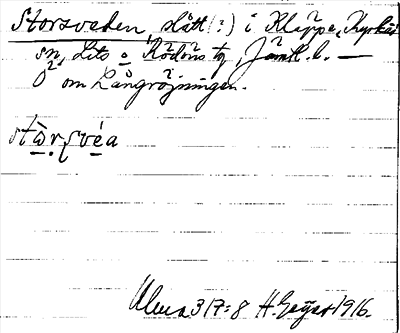 Storsveden, slått (?) i Kläppe, Kyrkås
sn, Lits o Rödöns tg, Jämtl. l. —
Ö om Långröjningen.
stὼrʃvéa
Ulma 317:8 H. Geijer 1916.